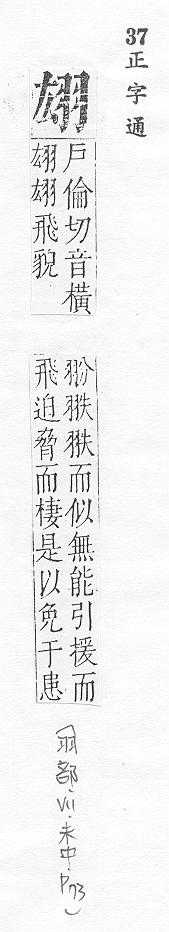 37 正字通
翃
戶倫切音橫
翃翃飛貌
翂翐翐而似無能引援而
飛迫脅而棲是以免于患
(羽部·VII·未中·P73)